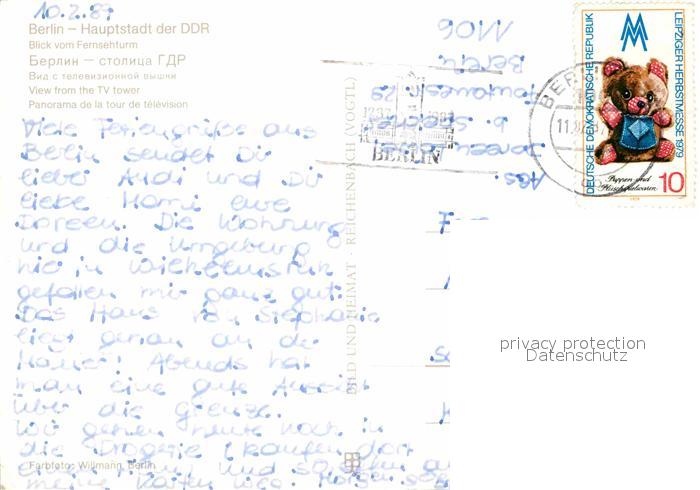 10.2.89
Berlin – Hauptstadt der DDR
Blick vom Fernsehturm
Берлин — столица ГДР
Вид с телевизионной вышки
View from the TV tower
Panorama de la tour de télévision
Viele Feriengrüße aus
Berlin sendet Dir
liebe Andi und Dir
liebe Mama eure
Doreen. Die Wohnung
und die Umgebung
hier in Wilhelmsruh
gefallen mir ganz gut.
Das Haus von Stephanie
liegt genau an der
Mauer! Abends hat
man eine gute Aussicht
über die Grenze.
Wir gehen heute noch in
die Drogerie (kaufen dort
ein) und
meine Karten Morgen
Farbfoto: Willmann, Berlin
BILD UND HEIMAT · REICHENBACH (VOGTL)
Abs.
Doreen
b.
29
Berlin
1106
BERLIN
BERLIN
DEUTSCHE DEMOKRATISCHE REPUBLIK
LEIPZIGER HERBSTMESSE 1979
Puppen und
Plüschspielwaren
10
privacy protection
Datenschutz